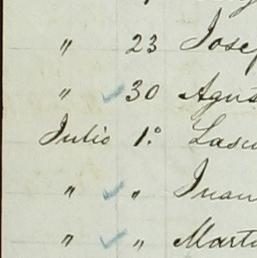 " 23 Jose
" 30 Agus
Julio 1.º Lasc
" " Juan
" " Marta